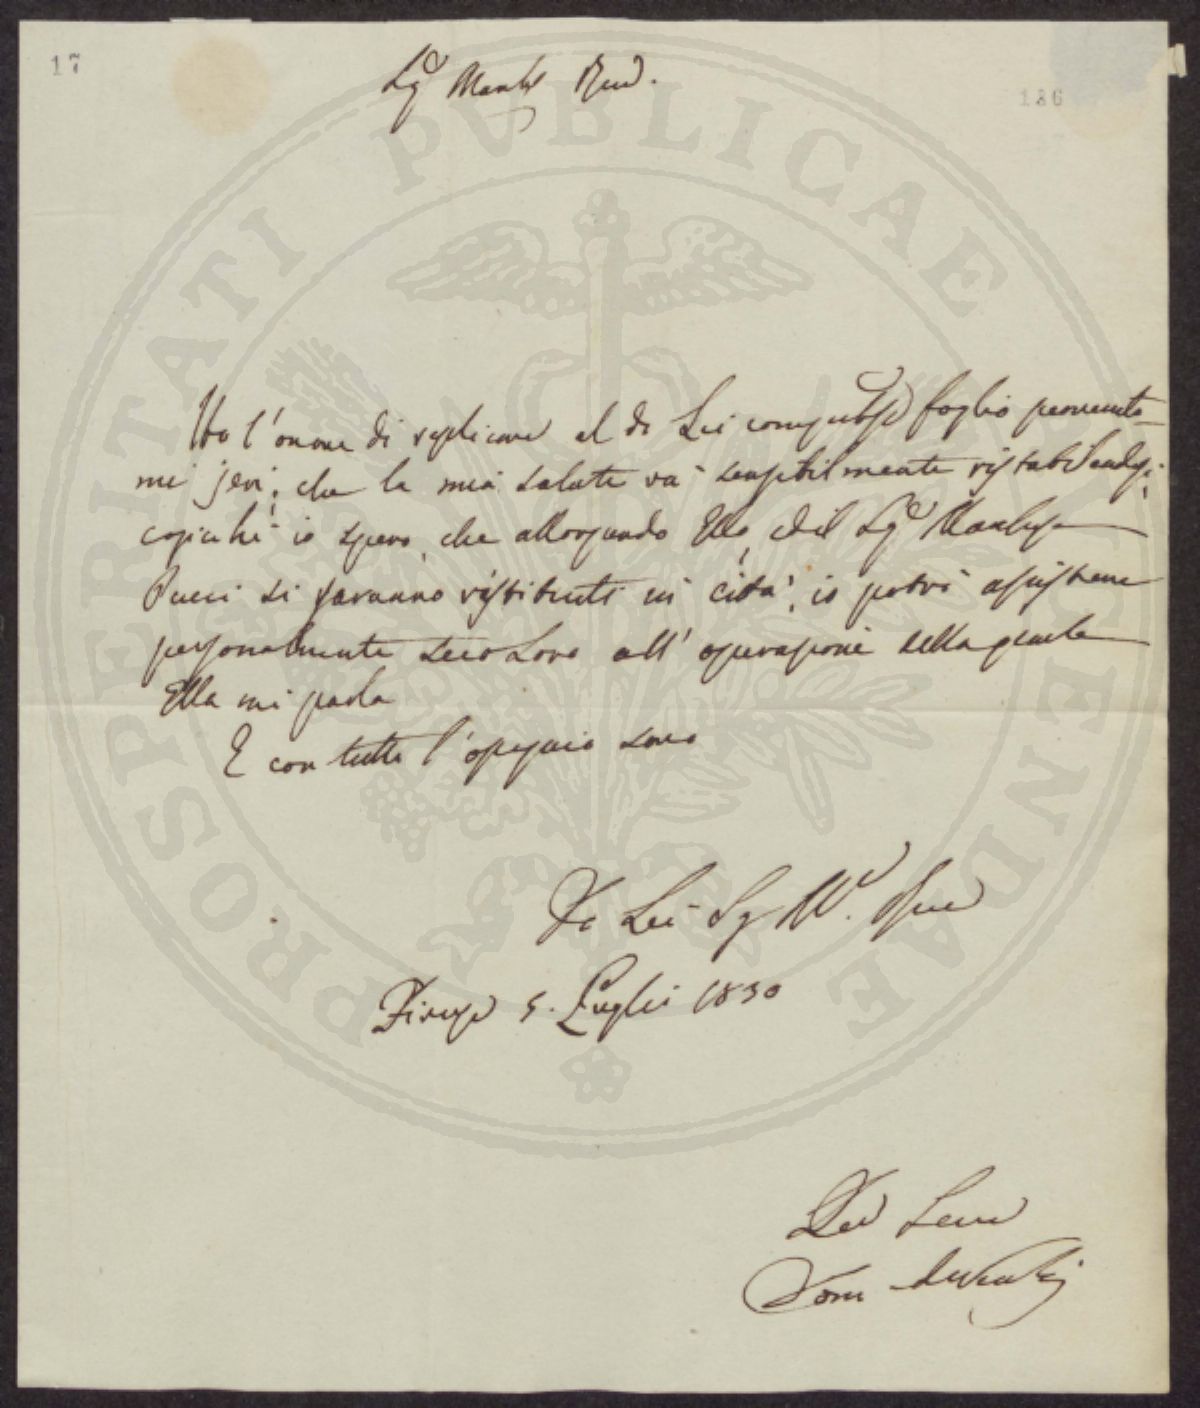 17
186
Sig.r March. Pne.
PROSPERITATI PVBLICAE AVGENDAE
Ho l'onore di replicare al di Lei compitiss.o foglio pervenuto-
mi jeri, che la mia salute va sensibilmente ristabilendosi,
cosicchè io spero, che allorquando Ella, ed il Sig.r Marchese
Pucci si saranno restituiti in città, io potrò assistere
personalmente seco Loro all'operazione della quale
Ella mi parla
E con tutto l'ossequio sono
Di Lei Sig. M. Pne
Firenze 5. Luglio 1830
Dev Serv